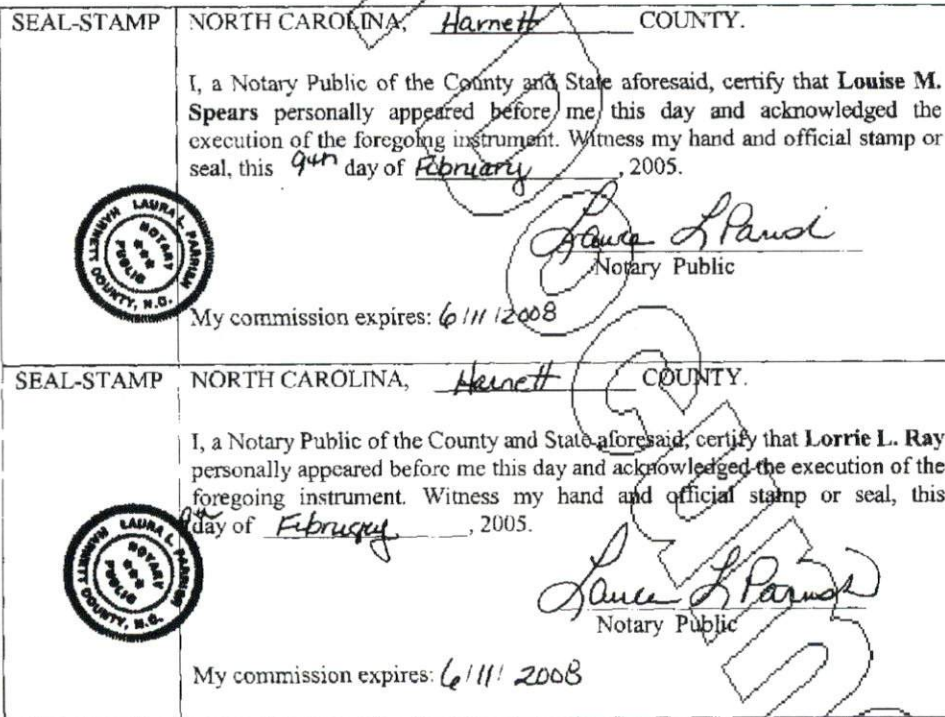 SEAL-STAMP NORTH CAROLINA, Harnett COUNTY.
I, a Notary Public of the County and State aforesaid, certify that Louise M.
Spears personally appeared before me this day and acknowledged the
execution of the foregoing instrument. Witness my hand and official stamp or
seal, this 9th day of February, 2005.
LAURA L. PARRISH
NOTARY
PUBLIC
HARNETT COUNTY, N.C.
Laura L Parrish
Notary Public
My commission expires: 6/11/2008
SEAL-STAMP NORTH CAROLINA, Harnett COUNTY.
I, a Notary Public of the County and State aforesaid, certify that Lorrie L. Ray
personally appeared before me this day and acknowledged the execution of the
foregoing instrument. Witness my hand and official stamp or seal, this
9th day of February, 2005.
LAURA L. PARRISH
NOTARY
PUBLIC
HARNETT COUNTY, N.C.
Laura L Parrish
Notary Public
My commission expires: 6/11/2008